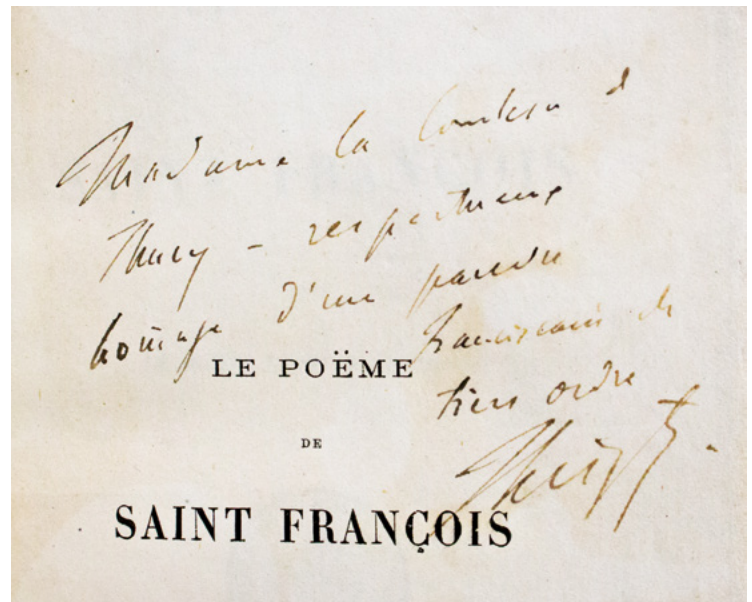 Madame la Comtesse d
Thury – respectueux
hommage d'un pauvre
franciscain du
tiers ordre
LE POËME
DE
SAINT FRANÇOIS